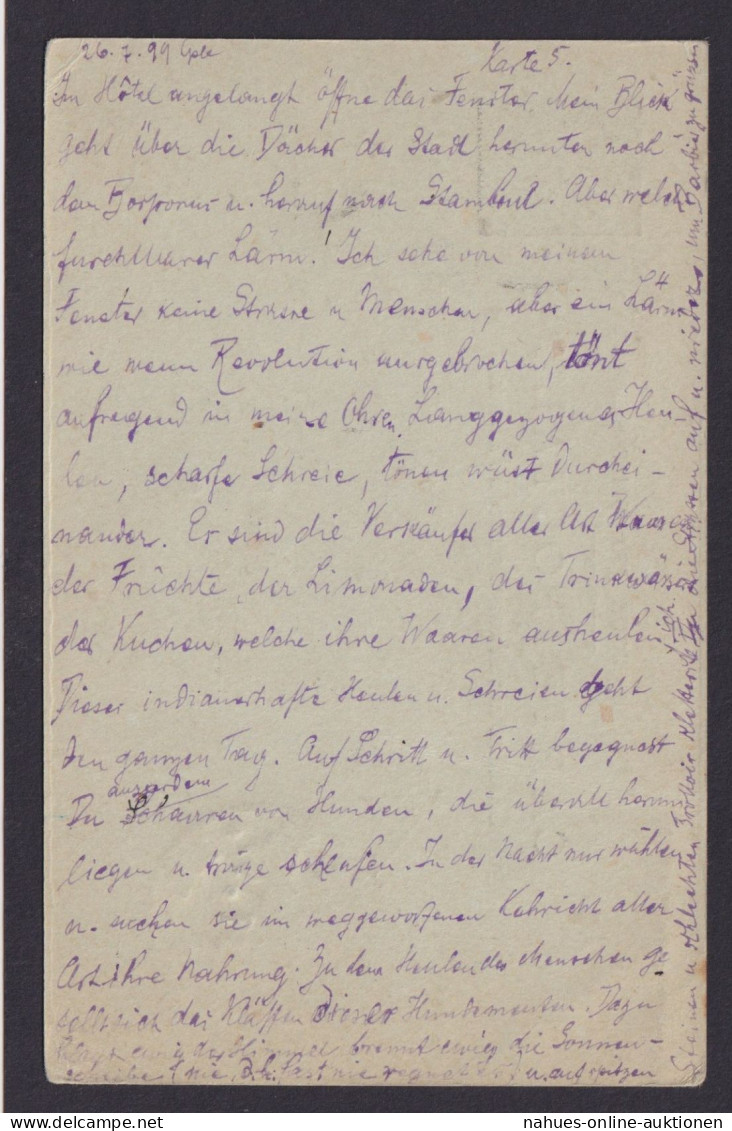 26.7.99
Karte 5.
Im Hôtel angelangt öffne das Fenster. Mein Blick
geht über die Dächer der Stadt herunter nach
dem Bosporus u. herauf nach Stambul. Aber welch
furchtbarer Lärm! Ich sehe von meinem
Fenster keine Strasse u Menschen, aber ein Lärm
wie wenn Revolution ausgebrochen, tönt
aufregend in meine Ohren. Langgezogenes Heu-
len, scharfe Schreie, tönen wüst durchei-
nander. Es sind die Verkäufer aller Art
der Früchte, der Limonaden, des
der Kuchen, welche ihre Waaren ausheulen
Dieser indianerhafte Heulen u. Schreien geht
den ganzen Tag. Auf Schritt u. Tritt begegnest
Du ausserdem Scharren von Hunden, die überall herum
liegen u. träge schlafen. In der Nacht nur wühlen
u. suchen sie im weggeworfenen Kehricht aller
Art ihre Nahrung. Zu dem Heulen des Menschen ge
sellt sich das Kläffen dieser Hundemeuten. Dazu
ewig der Himmel brennt ewig die Sonnen-
scheibe nie, d.h. fast nie regnet u. auf spitzen
Steinen u schlechten Trottoir klettere ich die Strassen auf u. nieder, um
nahues-online-auktionen.com